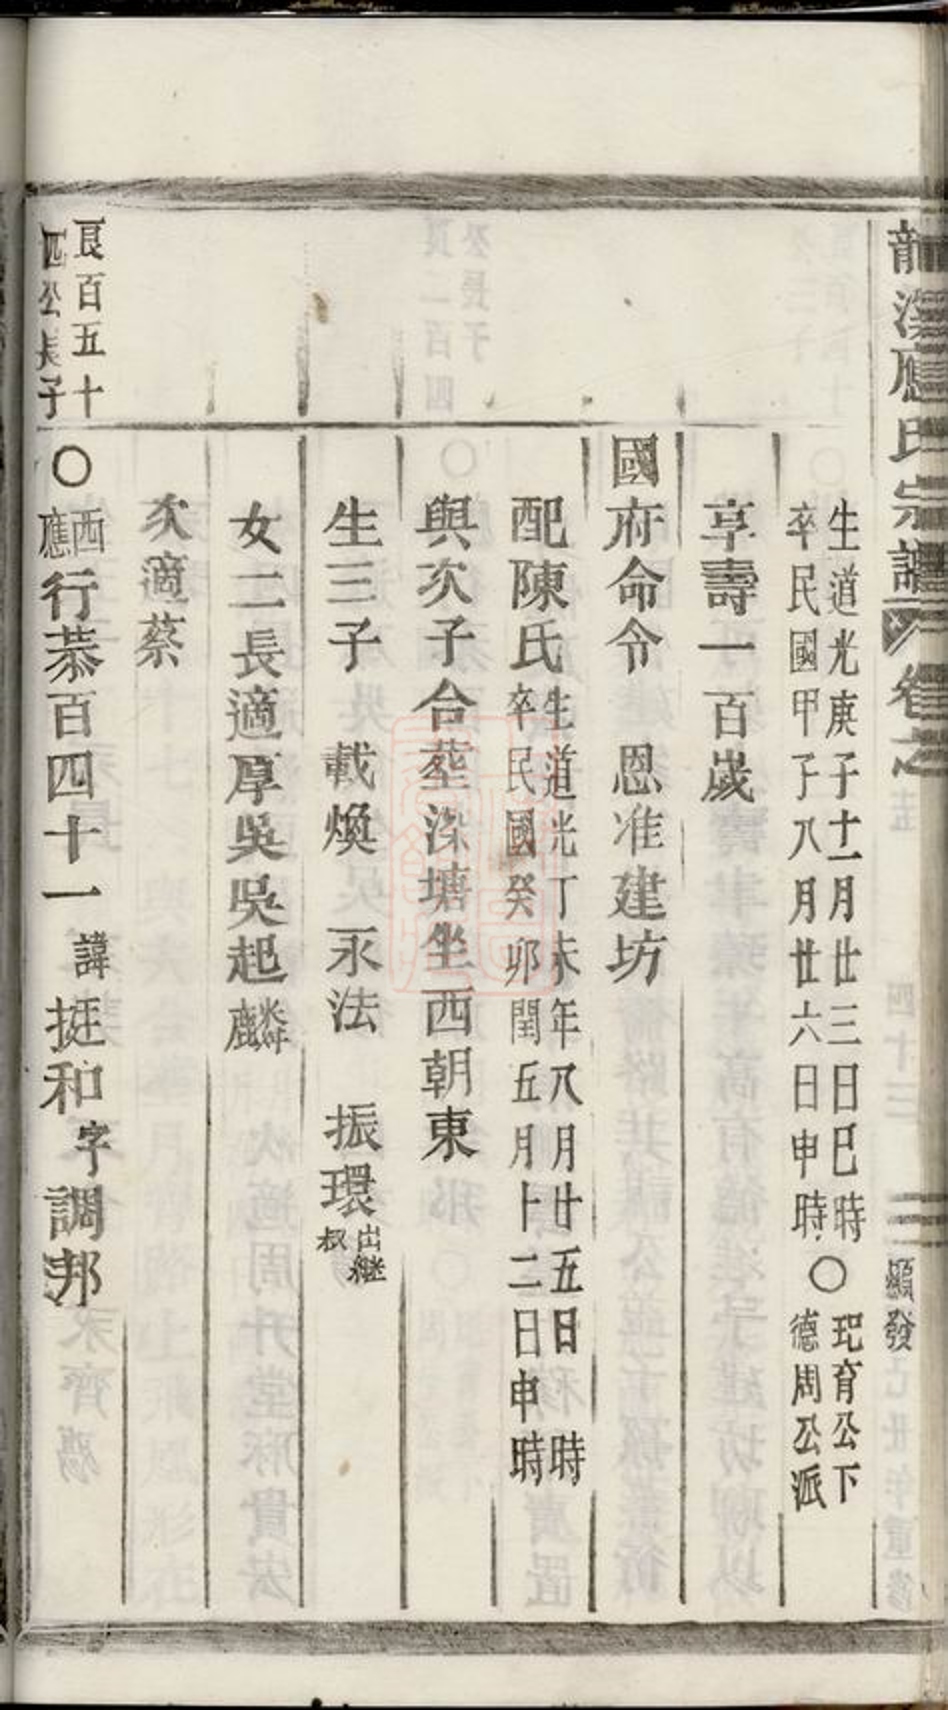 龍溪應氏宗譜 卷之 二 顯發
生道光庚子十一月廿三日巳時 〇 玘育公下
卒民國甲子八月廿六日申時 德周公派
享壽一百歲
國府命令 恩准建坊
配陳氏 生道光丁未年八月廿五日 時
卒民國癸卯閏五月十二日申時
與次子合塟深塘坐西朝東
生三子 載煥 永法 振環 出繼叔
女二長適厚吳吳起麟
次適蔡
良百五十
四公長子
〇 西應 行恭百四十一 諱挺和 字調邦